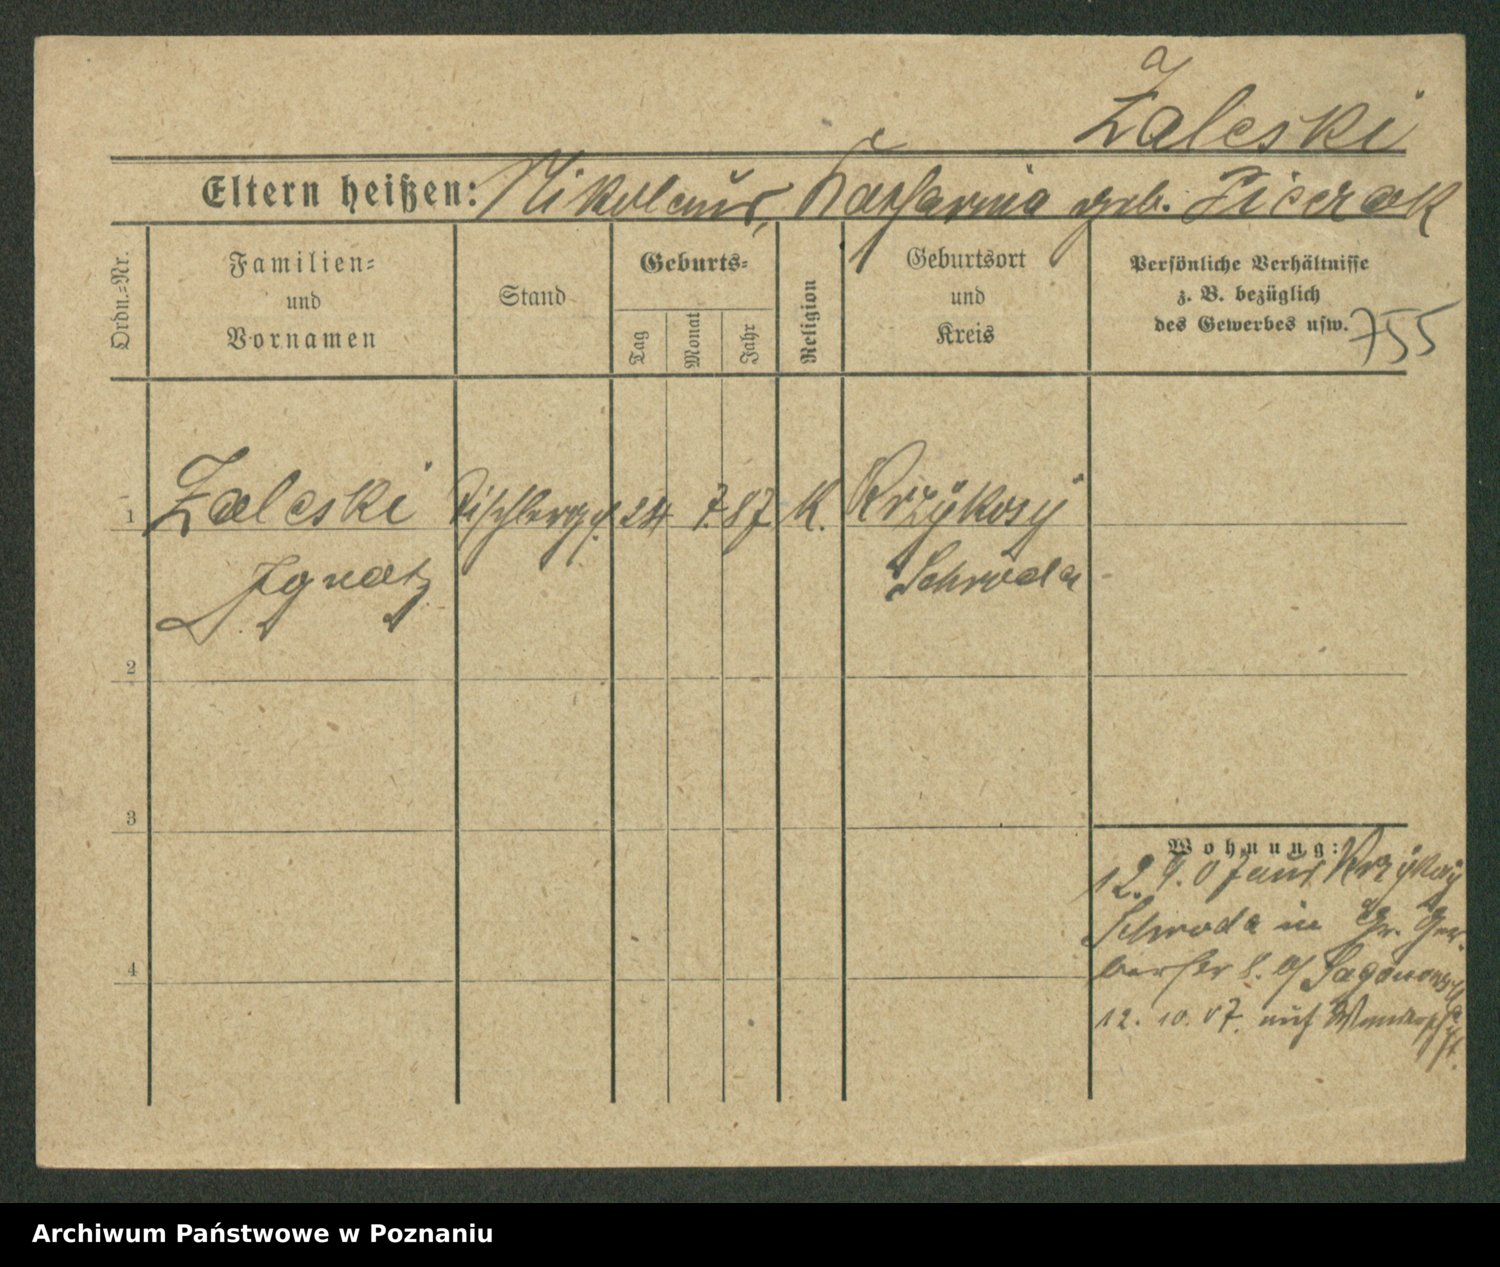 Zaleski
Eltern heißen: Nikolaus, Katharina geb. Pierak
Ordn.-Nr.
Familien-
und
Vornamen
Stand
Geburts-
Tag
Monat
Jahr
Religion
Geburtsort
und
Kreis
Persönliche Verhältnisse
z. B. bezüglich
des Gewerbes usw.
755
1 Zaleski Tischlerges. 24 7. 87 K. Krzykosy
Ignatz Schroda
2
3
4
Wohnung:
12. 9. 07 aus Krzykosy
Schroda in Gr. Ger-
berstr 8.
12. 10. 07. auf Wanderschaft.
Archiwum Państwowe w Poznaniu